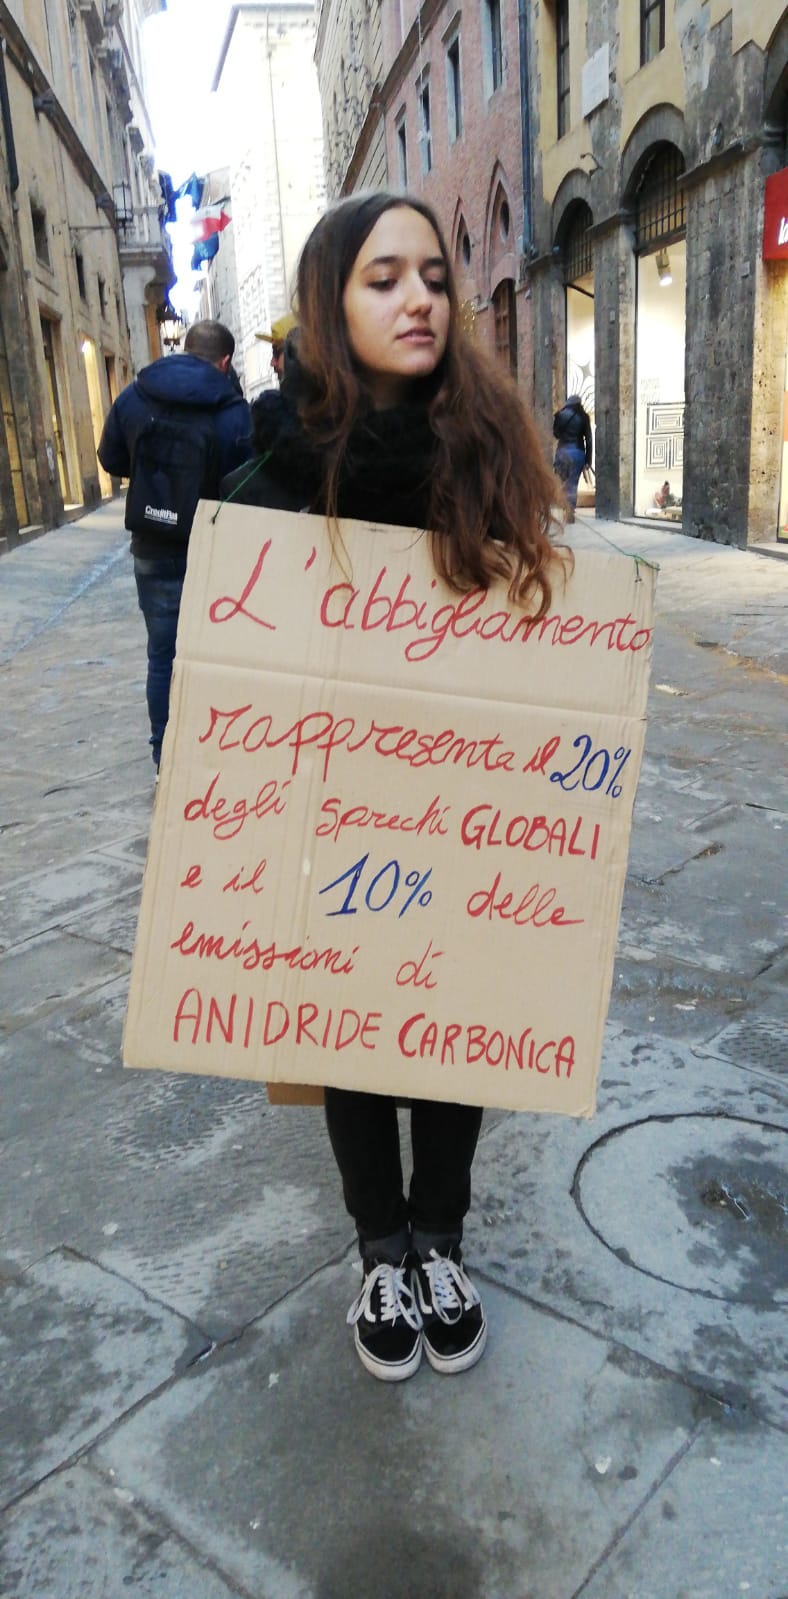 L'abbigliamento
rappresenta il 20%
degli sprechi GLOBALI
e il 10% delle
emissioni di
ANIDRIDE CARBONICA